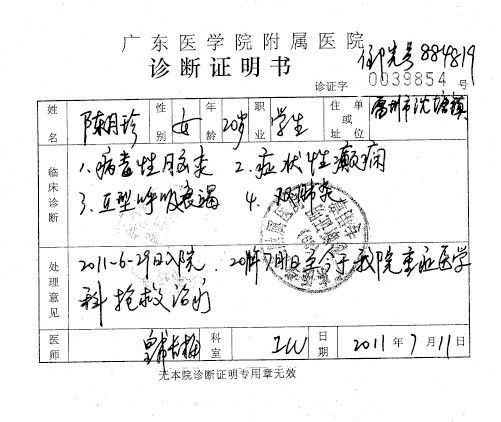 广东医学院附属医院
诊断证明书
住院号 884819
诊证字 0039854 号
姓名 陈月珍 性别 女 年龄 20岁 职业 学生 住址或单位 雷州市沈塘镇
临床诊断
1、病毒性脑炎 2. 症状性癫痫
3、Ⅱ型呼吸衰竭 4. 双肺炎
处理意见
2011-6-29日入院. 2011年7月1日至今于我院重症医学
科抢救治疗
医师 科室 ICU 日期 2011年7月11日
无本院诊断证明专用章无效